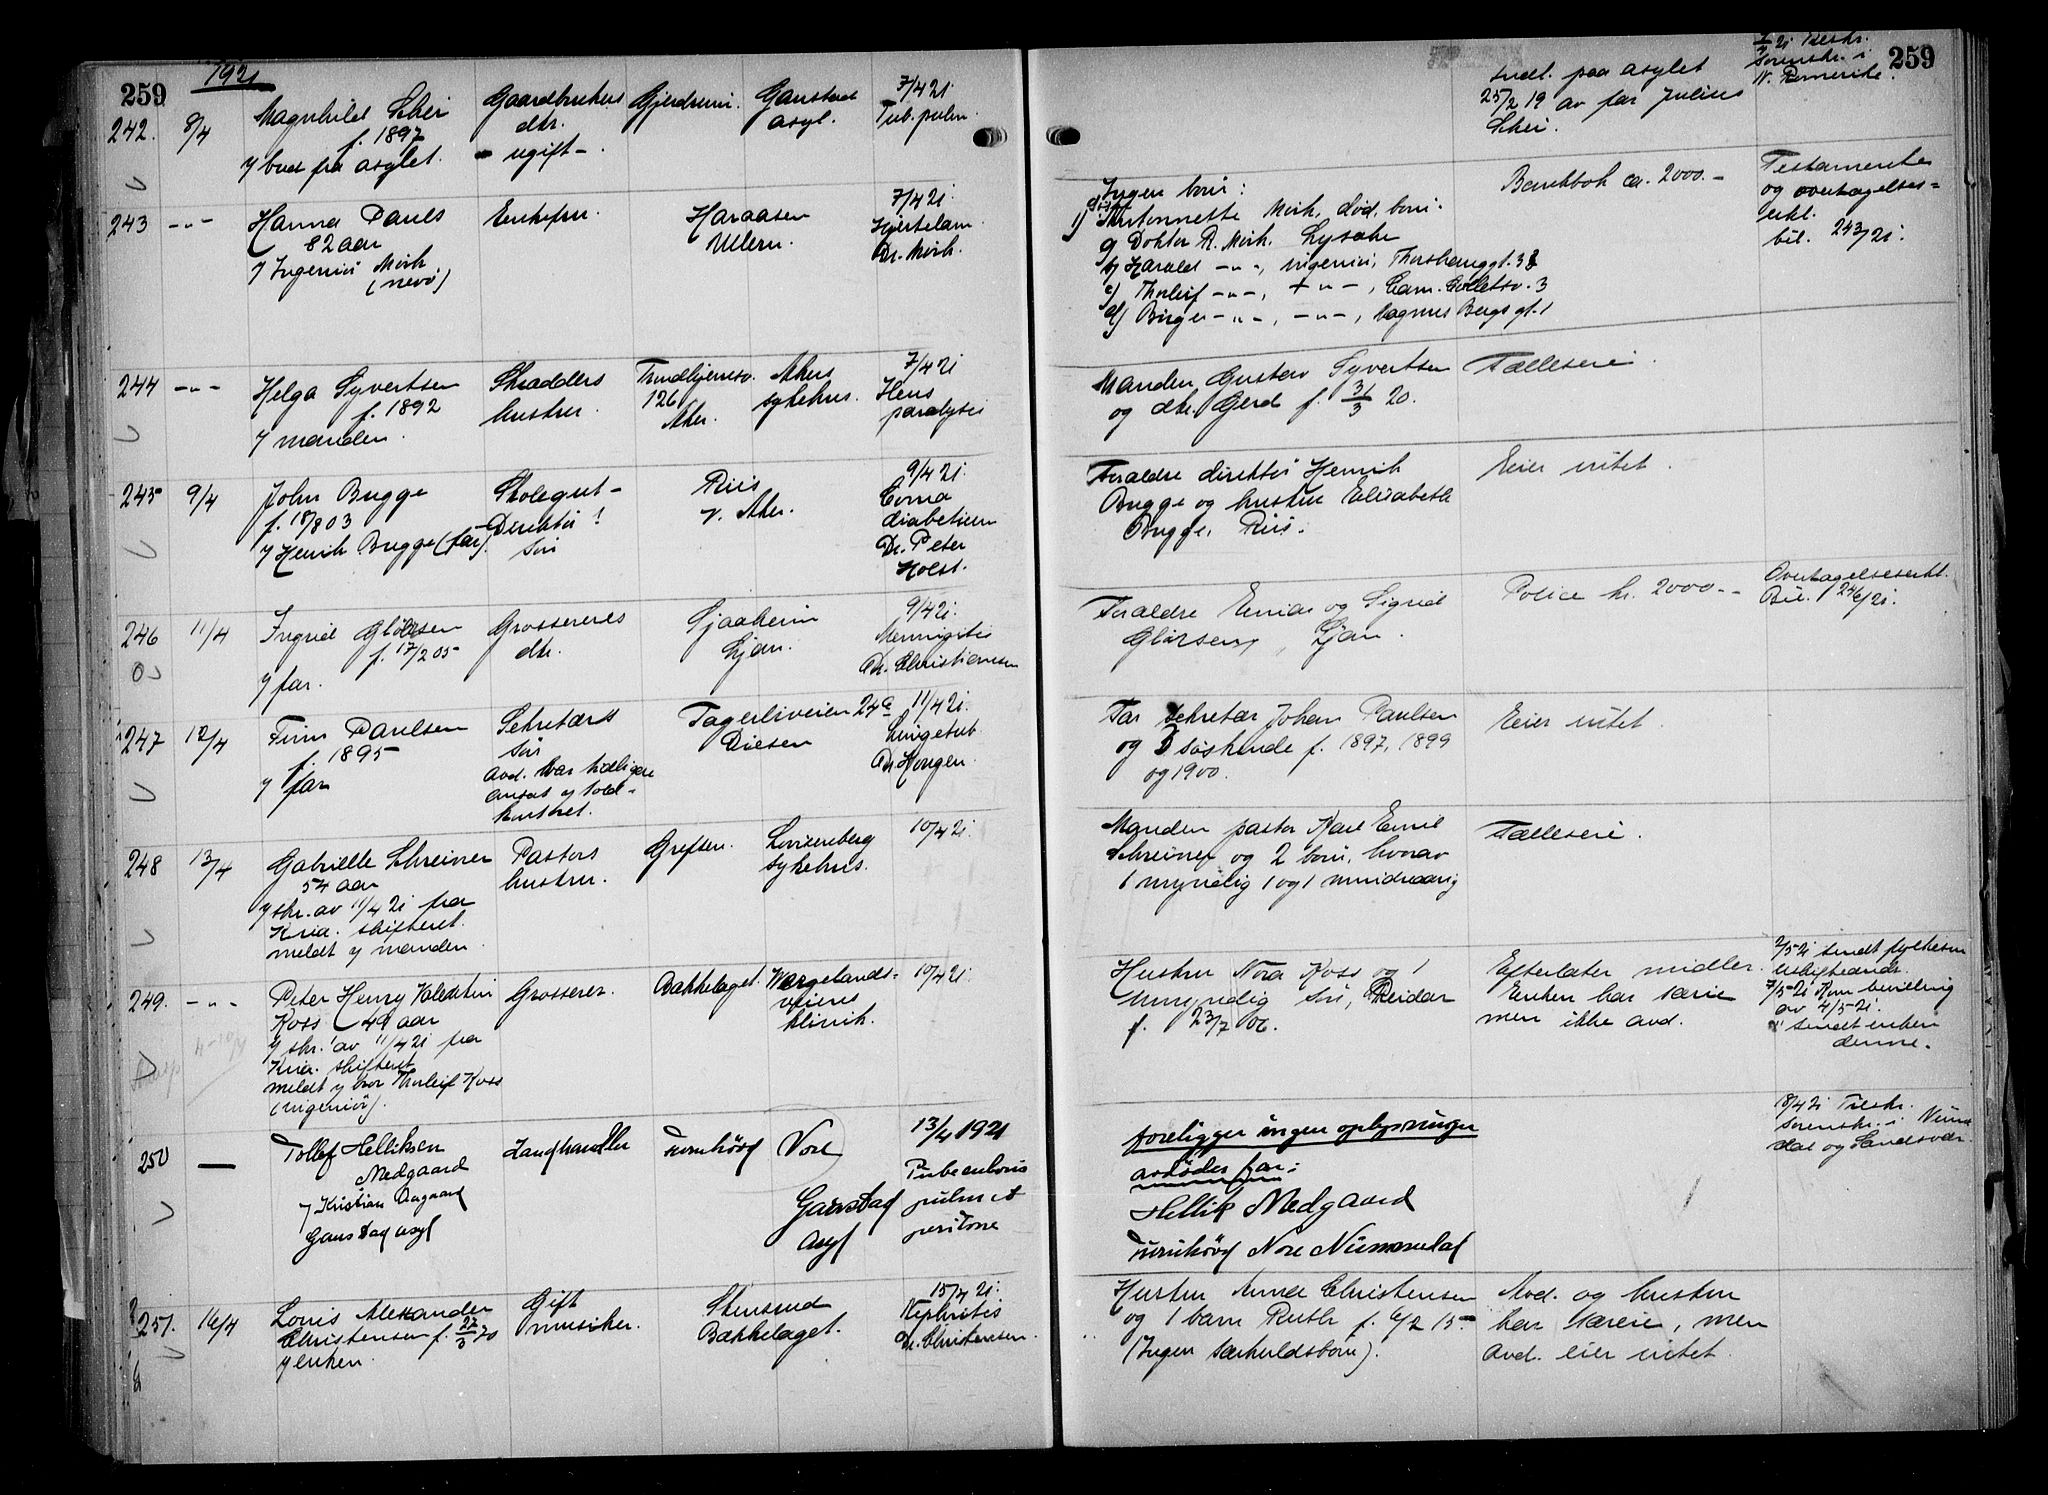 259
1921
242. 8/4 Magnhild Schei Gaardbrukers Gjerdrum. Gaustad 7/4 21.
f. 1897 dtr. asyl. Tub. pulm.
v/ bud fra asylet. ugift-
243 -"- Hanna Pauls Enkefru. Haraasen 7/4 21.
82 aar Ullern. Hjertelam.
v/ Ingeniør Mørk Dr. Mørk.
(nevø)
244 -"- Helga Syvertsen Skrædders Trondhjemsv. Akers 7/4 21
f. 1892 hustru. 126 sykehus.
v/ manden. Aker. paralysis
245 9/4 John Bugge Skolegut- Riis 9/4 21.
f. 18/8 03 Direktør v. Aker. Coma
v/ Henrik Bugge (far). søn diabeticum
Dr. Peter
Holst.
246 11/4 Ingrid Glørsen Grosserers Ljan. 9/4 21.
f. 17/2 05 dtr. Meningitis
v/ far. Dr. Christiansen
247 12/4 Finn Paulsen Sekretærs Fagerliveien 24a 11/4 21.
f. 1895 søn Disen Lungetub.
v/ far avd. var tidligere Dr. Hougen.
ansat v/ told-
kontoret.
248 13/4 Gabrielle Schreiner Pastors Grefsen. Lovisenberg 10/4 21.
54 aar hustru. sykehus.
v/ skr. av 11/4 21 fra
Kria. skifteret.
meldt v/ manden.
249. -"- Peter Henry Valentin Grosserer. Bækkelaget. Wergelands- 10/4 21.
Koss 49 aar veiens
v/ skr. av 11/4 21 fra klinik.
Kria. skifteret
meldt v/ bror Thorleif Koss
(ingeniør).
250 — Tollef Helliksen Landhandler Nore 13/4 1921
Medgaard Tuberculosis
v/ Kristian Aagaard Gaustad pulm et
Gaustad asyl Asyl peritone
251. 16/4 Louis Alexander Gift Stensrud 15/4 21.
Christensen f. 27/3 70 musiker. Bækkelaget. Nephritis
v/ enken. Dr. Christensen.
259
Indl. paa asylet Tilskr.
25/2 19 av far Julius Sorenskr. i
Schei. N. Romerike.
Ingen børn: Bankbok ca. 2000.- Testamente
1) Antonnette Mørk, død, børn: og overtagelses-
a) Doktor R. Mørk, Lysaker erkl.
b) Harald -"-, ingeniør, bil. 243/21.
c) Thorleif -"-, -"-, Cam. Collettsv. 3
d) Birger -"-, -"-, Magnus Bergs gt. 1
Manden Gustav Syvertsen Fælleseie.
og dtr. Gerd f. 31/3 20.
Foraldre direktør Henrik Eier intet.
Bugge og hustru Elisabeth
Bugge, Riis.
Foraldre Einar og Sigrid Police kr. 2000.- Overtagelseserkl.
Glørsen, Ljan. Bil. 246/21.
Far sekretær Johan Paulsen Eier intet.
og 3 søskende f. 1897, 1899
og 1900.
Manden pastor Karl Emil Fælleseie.
Schreiner og 2 børn, hvorav
1 myndig og 1 mindreaarig
Hustru Nora Koss og 1 Efterlater midler. 2/5 21 sendt
umyndig søn, Reidar Enken har særeie
f. 23/7 06. men ikke avd. 7/5 21 Kom bevilling
av 4/5 21.
sendt enken
denne.
foreligger ingen oplysninger 18/4 21 Tilskr.
avdødes far: Sorenskr. i Numedal og Sandsvær
Hellik Medgaard
Nore Nummedal
Hustru Anna Christensen Avd. og hustru
og 1 barn Ruth f. 6/2 15 har særeie, men
(Ingen særkuldsbørn). Avd. eier intet.